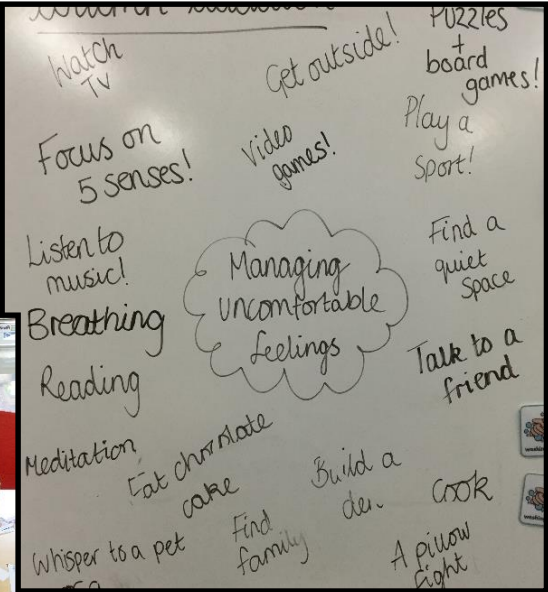 Watch
TV
Get outside!
Puzzles
+
board
games!
Focus on
5 senses!
Video
games!
Play a
Sport!
Listen to
music!
Managing
uncomfortable
feelings
Find a
quiet
space
Breathing
Talk to a
friend
Reading
Meditation
Eat chocolate
cake
Build a
Cook
Whisper to a pet
Find
family
A pillow
fight